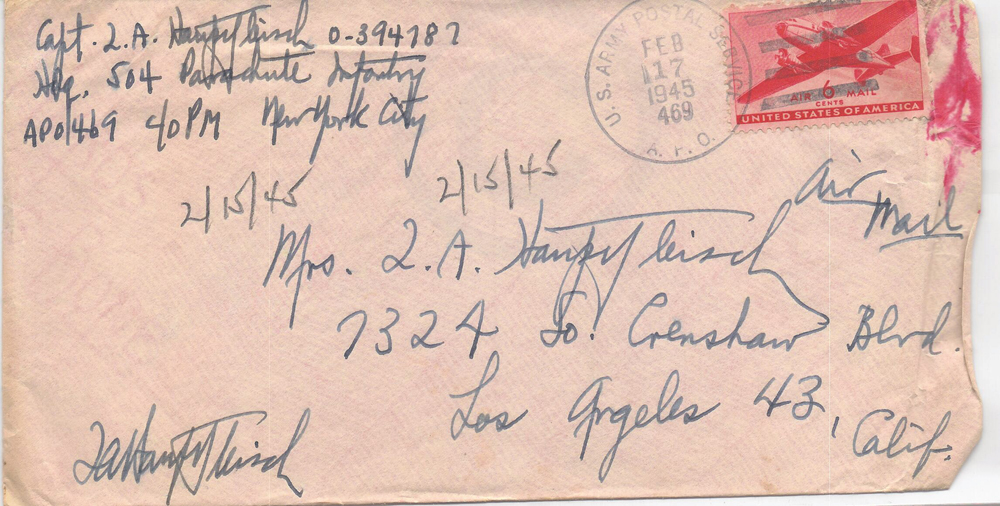 Capt. L.A. Hauptfleisch O-394787
Hdq. 504 Parachute Infantry
APO 469 c/o PM New York City
U.S. ARMY POSTAL SERVICE
FEB
17
1945
469
A.P.O.
AIR 6 MAIL
CENTS
UNITED STATES OF AMERICA
2/15/45 2/15/45
Air
Mail
Mrs. L.A. Hauptfleisch
7324 So. Crenshaw Blvd.
Los Angeles 43, Calif.
LA Hauptfleisch